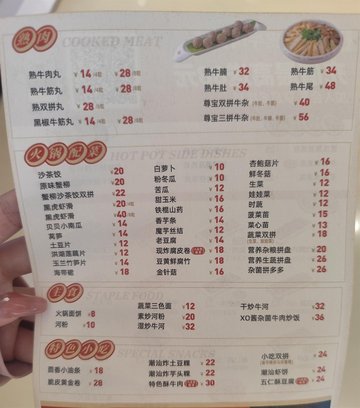 熟肉 COOKED MEAT
熟牛肉丸 ¥14(4粒) ¥28(8粒)
熟牛筋丸 ¥14(4粒) ¥28(8粒)
熟双拼丸 ¥28(8粒)
黑椒牛筋丸 ¥14(4粒) ¥28(8粒)
熟牛腩 ¥32
熟牛肚 ¥34
熟牛筋 ¥34
熟牛尾 ¥48
尊宝双拼牛杂 ¥40
尊宝三拼牛杂 ¥56
火锅配菜 HOT POT SIDE DISHES
沙茶饺 ¥20
原味蟹柳 ¥20
蟹柳沙茶饺双拼 ¥22
黑虎虾滑 ¥20
黑虎虾滑 ¥40
贝贝小南瓜 ¥14
莴笋 ¥14
土豆片 ¥12
洪湖莲藕片 ¥12
玉兰竹笋片 ¥14
海带裙 ¥18
白萝卜 ¥10
粉冬瓜 ¥10
苦瓜 ¥12
甜玉米 ¥16
铁棍山药 ¥16
香芋条 ¥14
魔芋丝结 ¥12
老豆腐 ¥14
现炸腐皮卷 ¥18
黄豆鲜腐竹 ¥18
金针菇 ¥16
杏鲍菇片 ¥16
鲜冬菇 ¥16
生菜 ¥12
娃娃菜 ¥12
时蔬 ¥12
菠菜苗 ¥15
菜心苗 ¥13
蔬菜双拼 ¥18
营养杂粮拼盘 ¥20
营养生蔬拼盘 ¥26
杂菌拼多多 ¥26
主食 STAPLE FOOD
火锅面饼 ¥8
河粉 ¥10
蔬菜三色面 ¥12
素炒河粉 ¥20
湿炒牛河 ¥32
干炒牛河 ¥32
XO酱杂菌牛肉炒饭 ¥36
特色小吃
茴香小油条 ¥18
脆皮黄金卷 ¥28
潮汕炸土豆粿 ¥22
潮汕炸芋头粿 ¥22
特色酥牛肉 ¥30
小吃双拼 ¥24
潮汕虾饼 ¥24
五仁酥豆腐 ¥24